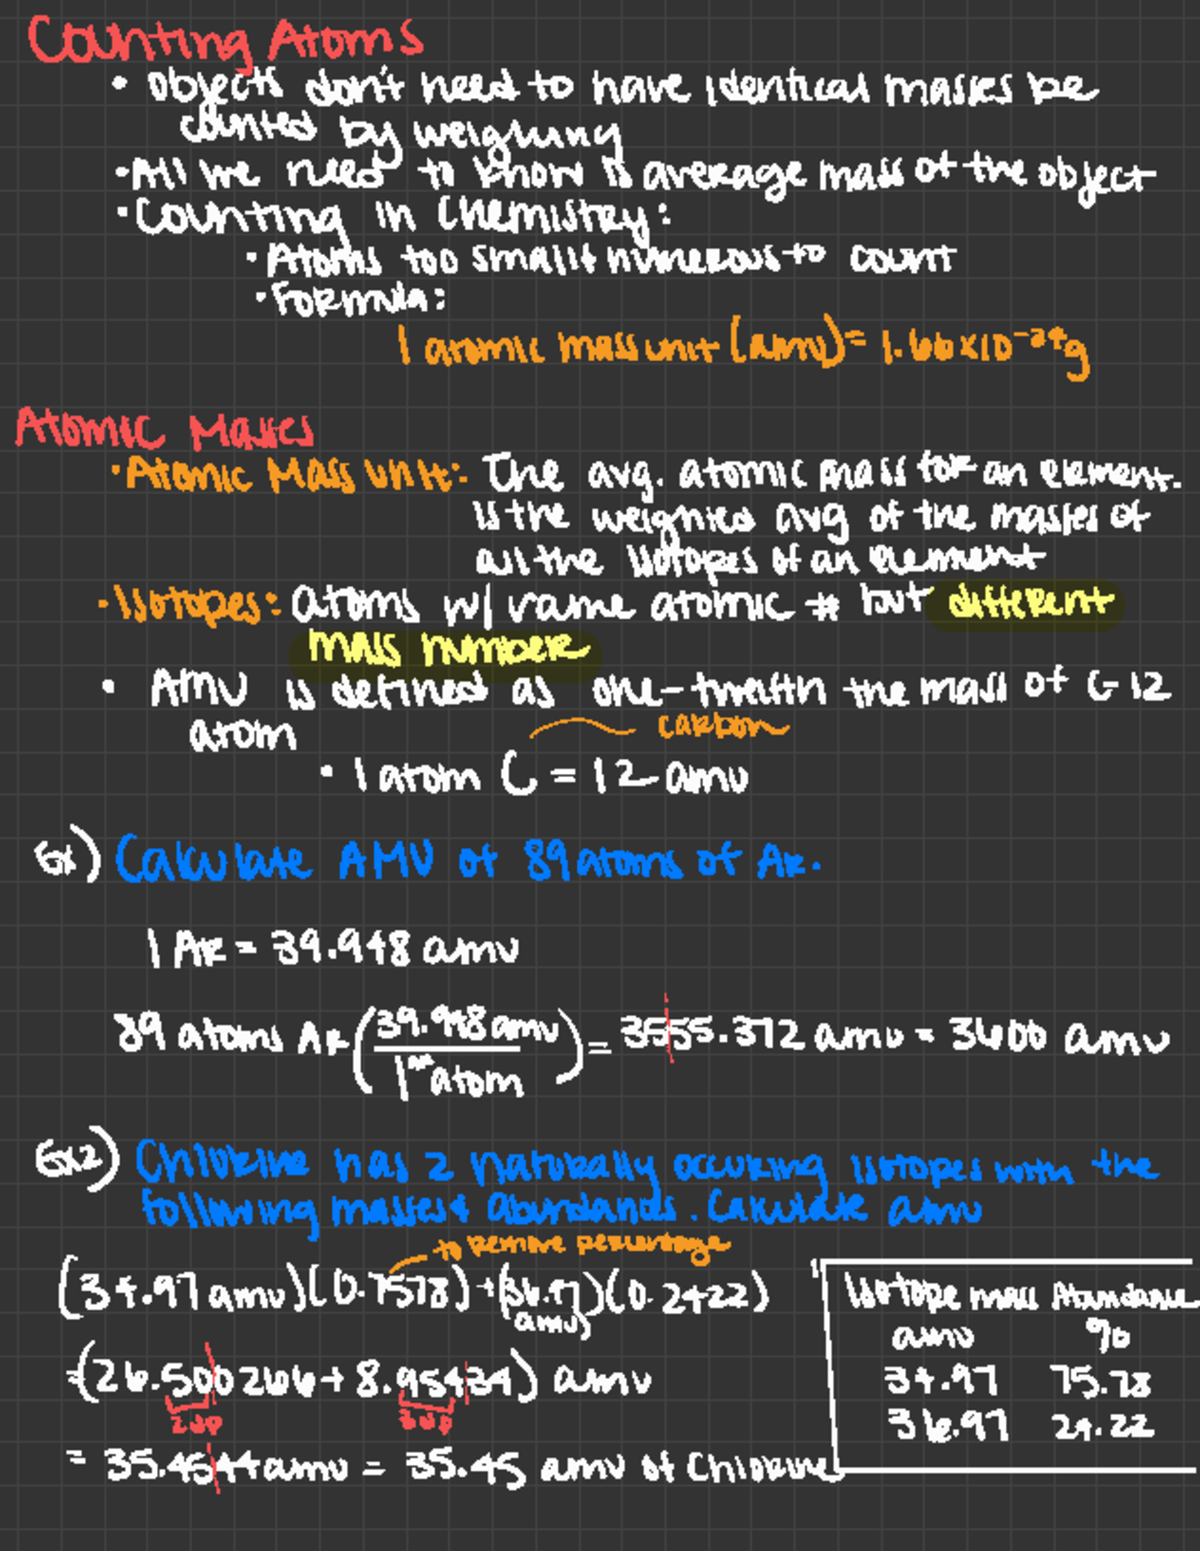 Counting Atoms
• Objects don't need to have identical masses be
counted by weighing
• All we need to know is average mass of the object
• Counting in Chemistry:
• Atoms too small & numerous to count
• Formula:
1 atomic mass unit (amu) = 1.66 x 10⁻²⁴g
Atomic Masses
• Atomic Mass Unit: The avg. atomic mass for an element.
is the weighted avg of the masses of
all the isotopes of an element
• Isotopes: atoms w/ same atomic # but different
mass number
• AMU is defined as one-twelfth the mass of C-12
atom
carbon
• 1 atom C = 12 amu
Ex) Calculate AMU of 89 atoms of Ar.
1 Ar = 39.948 amu
89 atoms Ar (39.948 amu / 1 atom) = 3555.372 amu = 3600 amu
Ex2) Chlorine has 2 naturally occuring isotopes with the
following masses & abundands. Calculate amu
to remove percentage
(34.97 amu)(0.7578) + (36.97 amu)(0.2422)
=(26.500266 + 8.95434) amu
2dp 3dp
= 35.4544 amu = 35.45 amu of Chlorine
Isotope mass Abundance
amu %
34.97 75.78
36.97 24.22